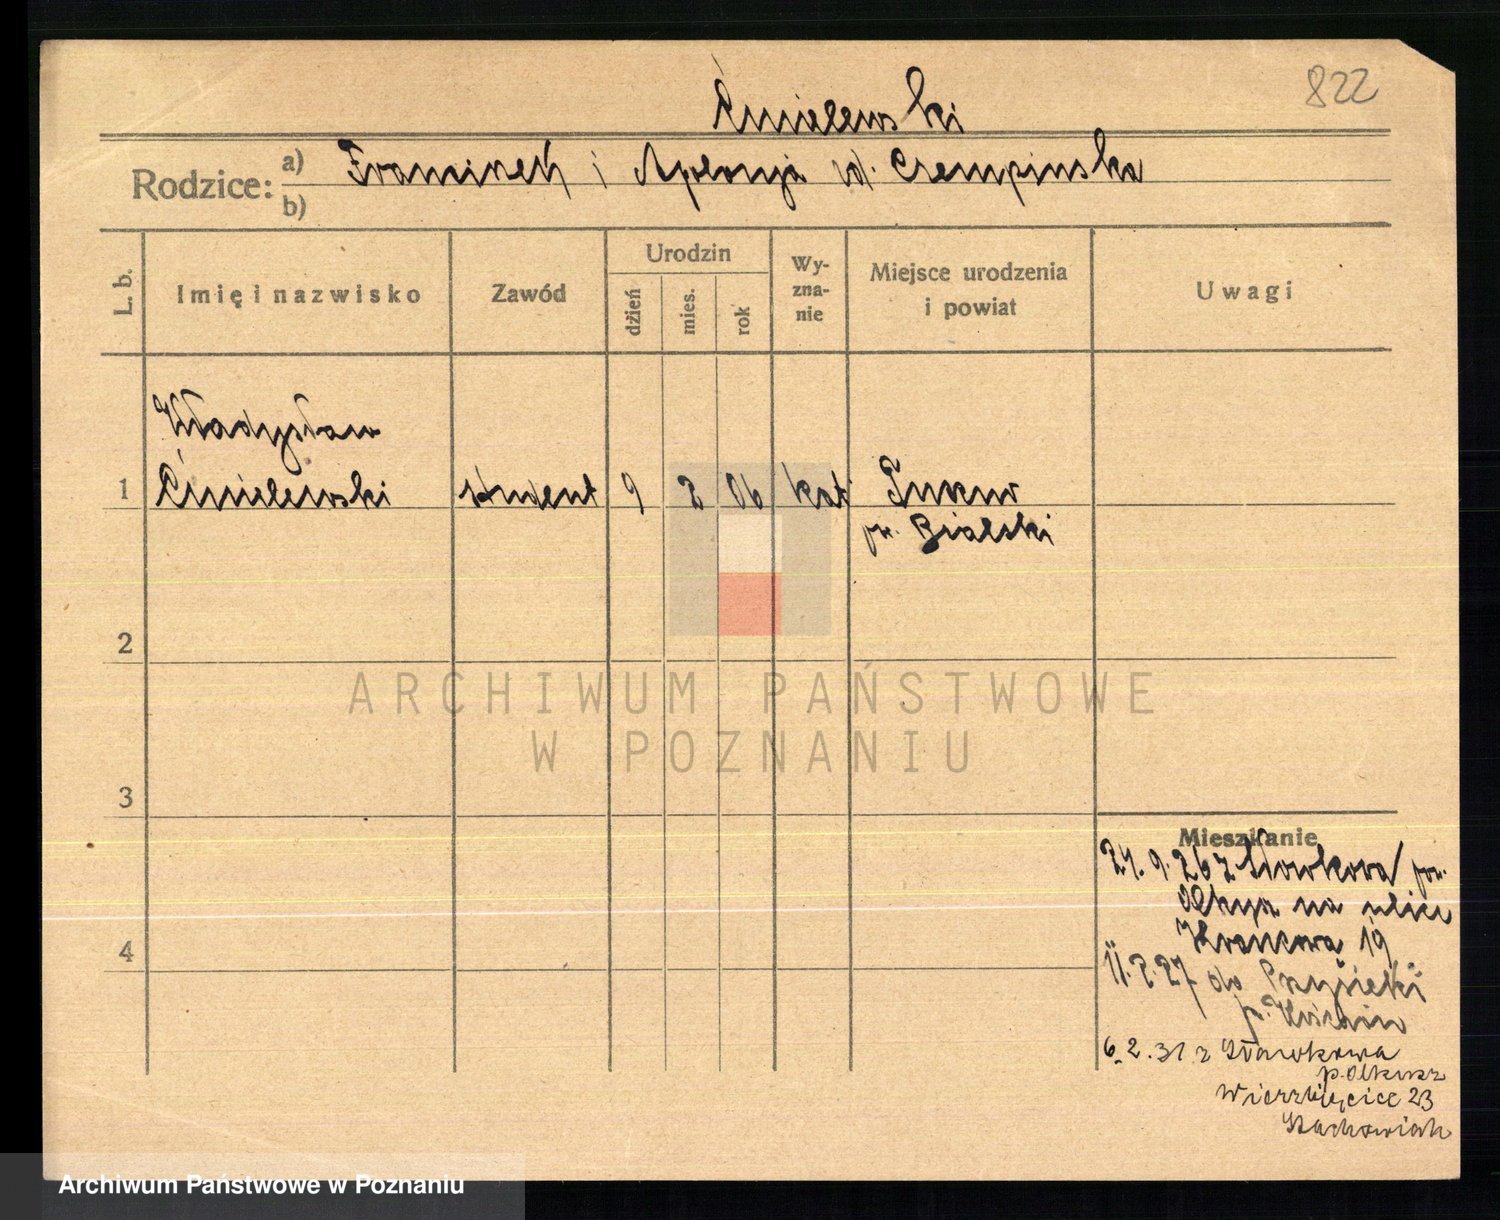 822
Ćmielewski
Rodzice:
a) Franciszek i Apolonja
b)
L. b.
Imię i nazwisko
Zawód
Urodzin
dzień
mies.
rok
Wy-
zna-
nie
Miejsce urodzenia
i powiat
Uwagi
Władysław
1 Ćmielewski student 9 2 06 kat
Bialski
2
3
Mieszkanie
27. 9. 26 z Sławkowa pow.
na ulice
19
4
11. 2. 27 do
6. 2. 31 z Sławkowa
p. Olkusz
Wierzbięcice 23
Stachowiak
ARCHIWUM PAŃSTWOWE
W POZNANIU
Archiwum Państwowe w Poznaniu